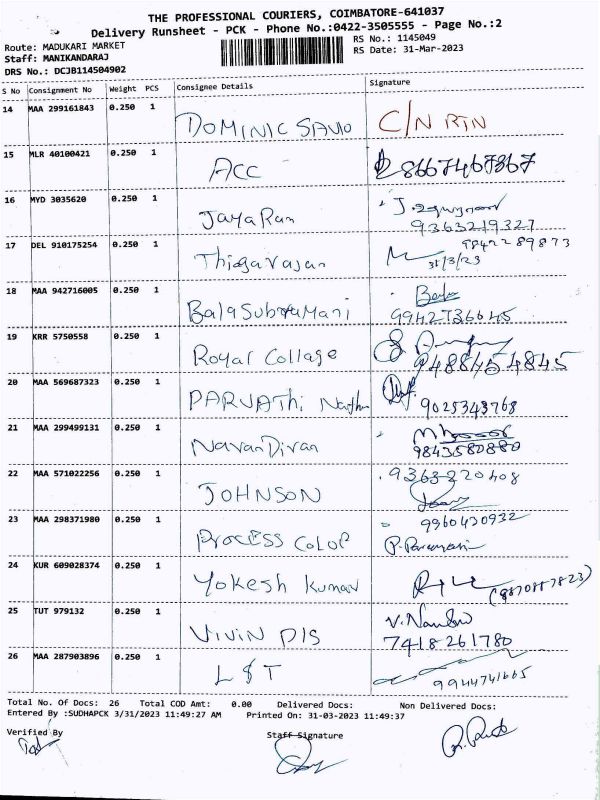 THE PROFESSIONAL COURIERS, COIMBATORE-641037
Delivery Runsheet - PCK - Phone No.:0422-3505555 - Page No.:2
Route: MADUKARI MARKET
RS No.: 1145049
Staff: MANIKANDARAJ
RS Date: 31-Mar-2023
DRS No.: DCJB114504902
S No Consignment No Weight PCS Consignee Details Signature
14 MAA 299161843 0.250 1 DOMINIC SAVIO C/N RTN
15 MLR 40100421 0.250 1 ACC 8667467367
16 MYD 3035620 0.250 1 JayaRam
9363219327
17 DEL 910175254 0.250 1 Thiagarajan 9842289873
31/3/23
18 MAA 942716005 0.250 1 BalaSubraMani
9942736645
19 KRR 5750558 0.250 1 Royal Collage
9488454845
20 MAA 569687323 0.250 1 PARVAThi
9025343768
21 MAA 299499131 0.250 1
9843580880
22 MAA 571022256 0.250 1 JOHNSON 9363220408
23 MAA 298371980 0.250 1 PROCESS COLOP 9960430932
24 KUR 609028374 0.250 1 Yokesh Kumar
25 TUT 979132 0.250 1 VIVIN DIS
7418261780
26 MAA 287903896 0.250 1 L&T
9944741665
Total No. Of Docs: 26 Total COD Amt: 0.00 Delivered Docs: Non Delivered Docs:
Entered By :SUDHAPCK 3/31/2023 11:49:27 AM Printed On: 31-03-2023 11:49:37
Verified By Staff Signature